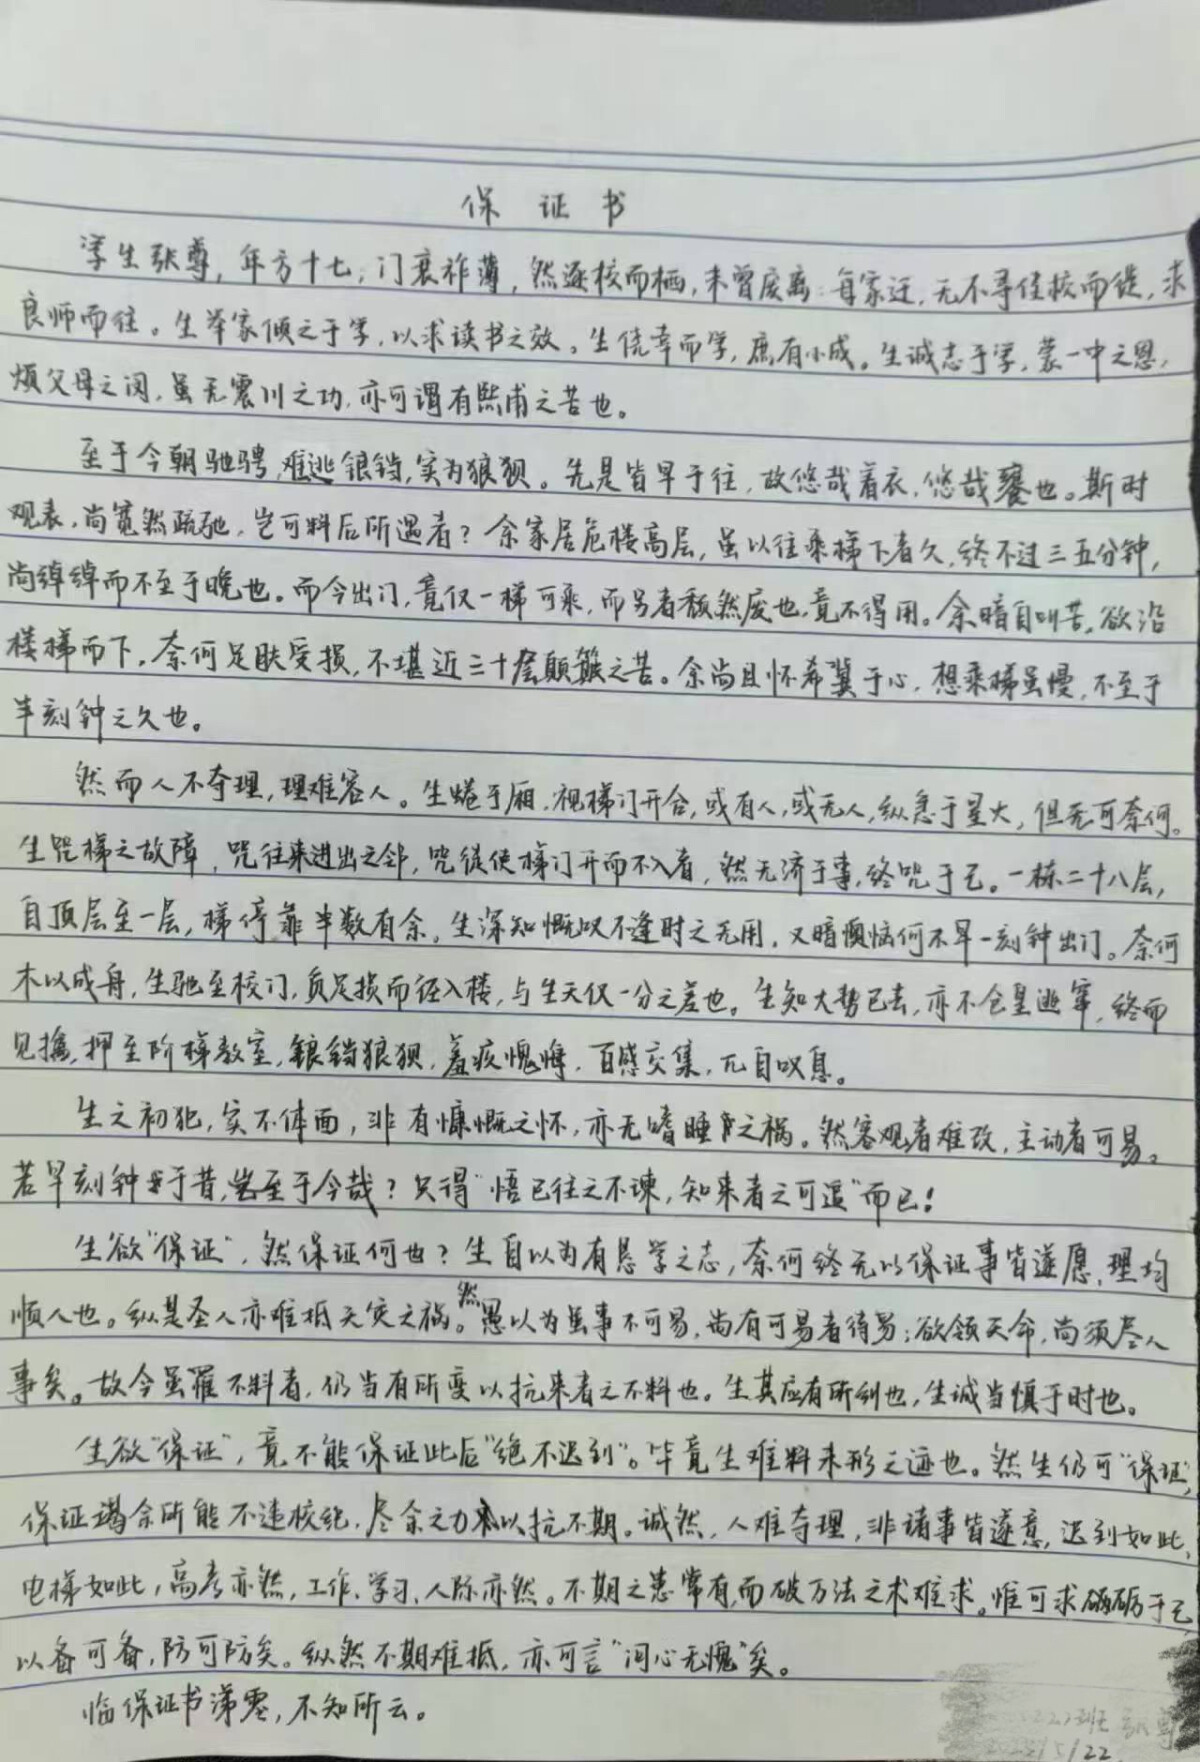 保证书
学生张尊，年方十七，门衰祚薄，然逐校而栖，未曾废离，每家迁，无不寻佳校而徙，求
良师而往。生举家倾之于学，以求读书之效。生侥幸而学，庶有小成。生诚志于学，蒙一中之恩，
烦父母之闵，虽无震川之功，亦可谓有熙甫之苦也。
至于今朝驰骋，难逃锒铛，实为狼狈。先是皆早于往，故悠哉着衣，悠哉饔也。斯时
观表，尚宽然疏弛，岂可料后所遇者？余家居危楼高层，虽以往乘梯下者久，终不过三五分钟，
尚绰绰而不至于晚也。而今出门，竟仅一梯可乘，而另者颓然废也，竟不得用。余暗自叫苦，欲沿
楼梯而下，奈何足肤受损，不堪近三十层颠簸之苦。余尚且怀希冀于心，想乘梯虽慢，不至于
半刻钟之久也。
然而人不夺理，理难容人。生蜷于厢，视梯门开合，或有人，或无人，纵急于星火，但无可奈何。
生咒梯之故障，咒往来进出之邻，咒徒使梯门开而不入者，然无济于事，终咒于己。一栋二十八层，
自顶层至一层，梯停靠半数有余。生深知慨叹不逢时之无用，又暗懊恼何不早一刻钟出门。奈何
木以成舟，生驰至校门，负足损而径入楼，与生天仅一分之差也。生知大势已去，亦不仓皇逃窜，终而
见擒，押至阶梯教室，锒铛狼狈，羞疚愧悔，百感交集，兀自叹息。
生之初犯，实不体面，非有慷慨之怀，亦无嗜睡之祸。然客观者难改，主动者可易。
若早刻钟于昔，岂至于今哉？只得“悟已往之不谏，知来者之可追”而已！
生欲“保证”，然保证何也？生自以为有恳学之志，奈何终无以保证事皆遂愿，理均
顺人也。纵是圣人亦难抵天灾之祸。然愚以为虽事不可易，尚有可易者待易；欲领天命，尚须尽人
事矣。故今虽罹不料者，仍当有所变以抗来者之不料也。生其应有所训也，生诚当慎于时也。
生欲“保证”，竟不能保证此后“绝不迟到”。毕竟生难料未形之迹也。然生仍可“保证”，
保证竭余所能不违校纪，尽余之力以抗不期。诚然，人难夺理，非诸事皆遂意，迟到如此，
电梯如此，高考亦然，工作、学习、人际亦然。不期之患常有，而破万法之术难求。惟可求砥砺于己
以备可备，防可防矣。纵然不期难抵，亦可言“问心无愧”矣。
临保证书涕零，不知所云。
班 张尊
5/22